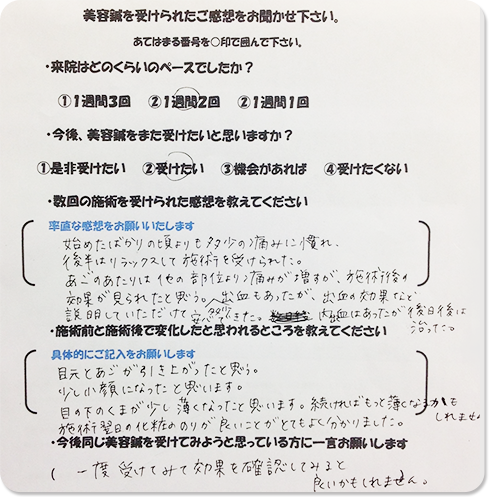 美容鍼を受けられたご感想をお聞かせ下さい。
あてはまる番号を○印で囲んで下さい。
・来院はどのくらいのペースでしたか？
①1週間3回 ②1週間2回 ②1週間1回
・今後、美容鍼をまた受けたいと思いますか？
①是非受けたい ②受けたい ③機会があれば ④受けたくない
・数回の施術を受けられた感想を教えてください
率直な感想をお願いいたします
始めたばかりの頃よりも多少の痛みに慣れ、
後半はリラックスして施術を受けられた。
あごのあたりは他の部位より痛みが増すが、施術後の
効果が見られたと思う。出血もあったが、出血の効果など
説明していただけて安心できた。内出血はあったが後日後は
治った。
・施術前と施術後で変化したと思われるところを教えてください
具体的にご記入をお願いします
目元とあごが引き上がったと思う。
少し小顔になったと思います。
目の下のくまが少し薄くなったと思います。続ければもっと薄くなるかも
しれません
施術翌日の化粧ののりが良いことがとてもよく分かりました。
・今後同じ美容鍼を受けてみようと思っている方に一言お願いします
一度受けてみて効果を確認してみると
良いかもしれません。